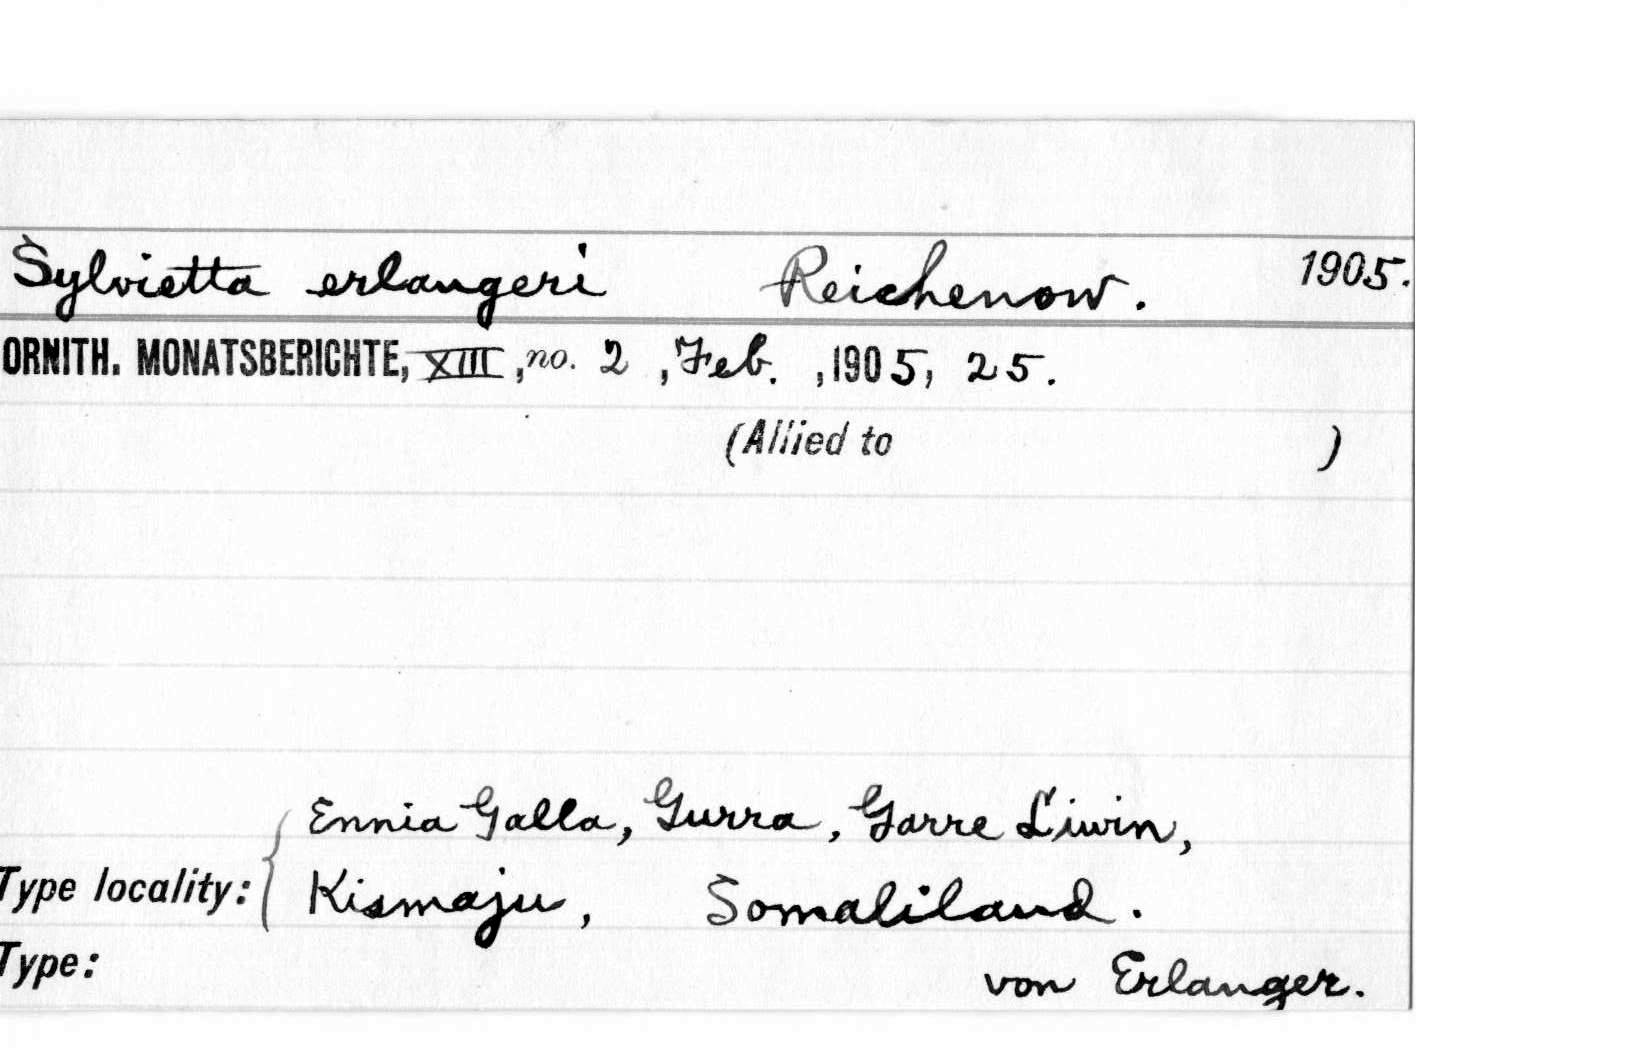 Sylvietta erlangeri Reichenow. 1905.
ORNITH. MONATSBERICHTE, XIII, no. 2, Feb., 1905, 25.
(Allied to )
Ennia Galla, Gurra, Garre Liwin,
Type locality: Kismaju, Somaliland.
Type: von Erlanger.